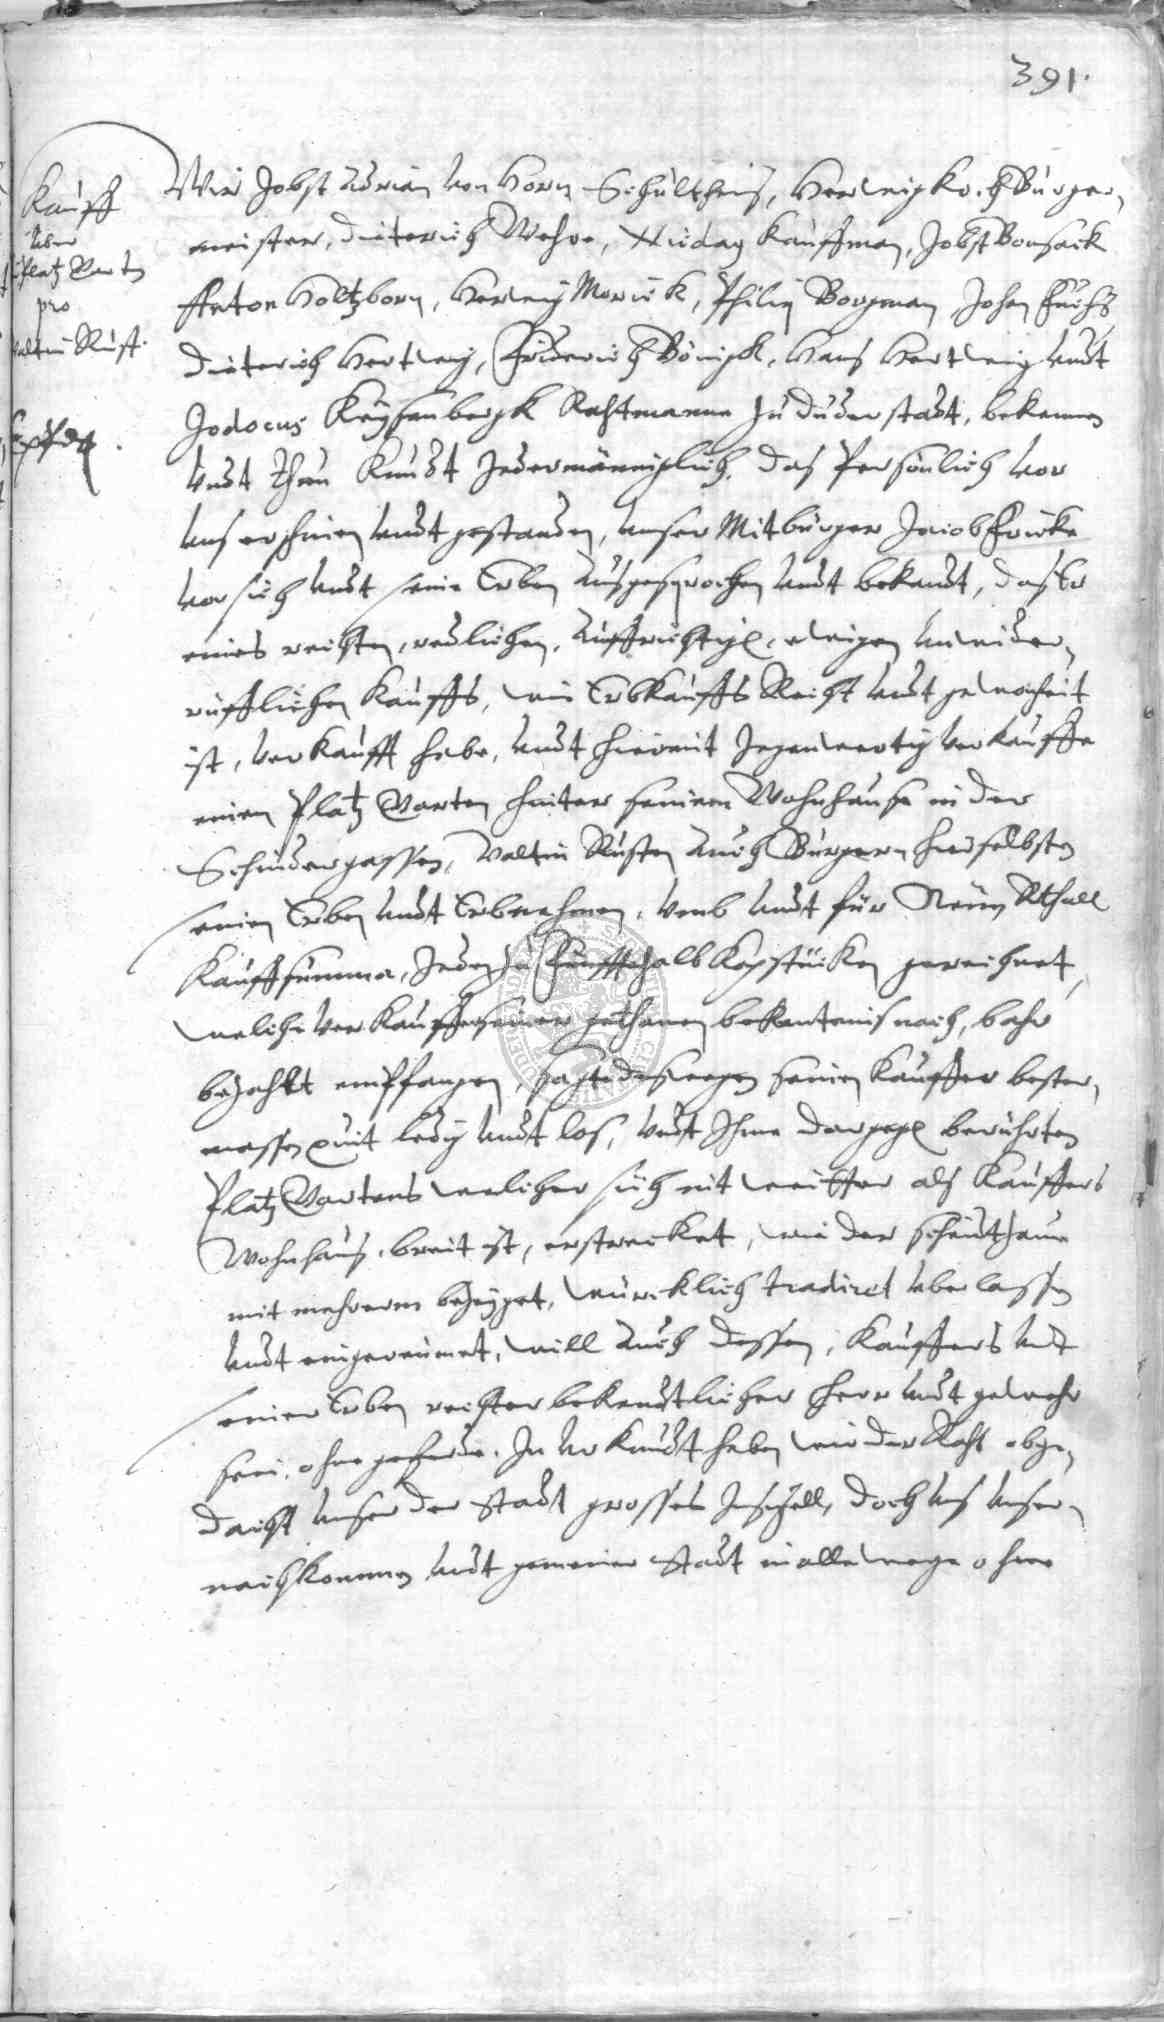 391.
Kauff
über
Platz Garten
pro
Valtin Rust.
Wir Jobst Adrian von Horn Schultheis, Herwig Koch Bürger,
meister, Dieterich Wehre, Hidag Kauffman, Jobst Bonsack
Anton Holtzborn, Herwig Morick, Philip Borgman, Johan Fuchs
Dieterich Hertwig, Friderich Bönigk, Hans Hertwig undt
Jodocus Keysenbergk Rahtmanne zu Duderstadt, bekennen
undt thun kundt Jedermänniglich, das Persönlich vor
uns erschienen undt gestanden, unser Mitbürger Jacob Fricke
vor sich undt seine Erben ausgesprochen undt bekandt, das Er
eines rechten, redlichen, Auffrichtigen, ewigen unwider,
rüfflichen Kauffs, wie Erbkauffs Recht undt gewonheit
ist, verkaufft habe, undt hiermit Jegenwertig verkauffe
einen Platz Garten hinter seinem Wohnhause in der
Schindergassen, Valtin Rusten auch Bürgern hieselbsten
seinen Erben undt Erbnehmen, umb undt für Neun Rthall
Kauffsumma, Jeden zu Fünfftehalb Kopstücken gerechnet,
welche Verkauffer seiner gethanen bekantenis nach, bahr
bezahlt empfangen, sagte deswegen seinen Kauffer bester,
massen quit ledig undt los, undt Ihme dargegen berührten
Platz Gartens welcher sich nit weitter als Kauffers
Wohnhaus breit ist, erstrecket, wie der scheidtzaun
mit mehrerm bezeiget, würcklich tradiret uberlassen
undt eingereumet, will auch dessen, Kauffers undt
seiner Erben rechter bekendtlicher Herr undt gewehr
sein, ohne geferde. In Urkundt haben wir der Raht obge,
dacht unser der Stadt grosses Insigell, doch uns unsern
nachkommen undt gemeiner Stadt in alle wege ohne